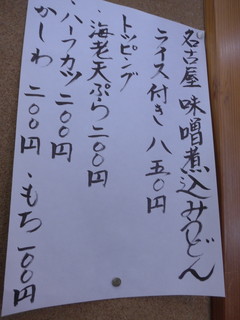 名古屋味噌煮込みうどん
ライス付き 八五〇円
トッピング
・海老天ぷら 二〇〇円
・ハーフカツ 二〇〇円
・かしわ 二〇〇円 ・もち 一〇〇円